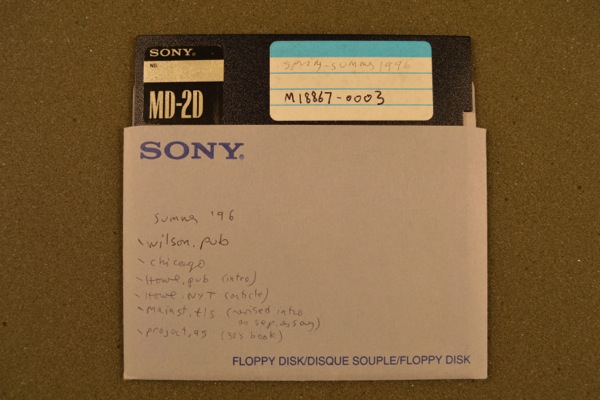 SONY®
NO.
MD-2D
Spring-Summer 1996
M18867-0003
SONY®
Summer '96
\wilson.pub
\chicago
\Howe.pub (intro)
\Howe.NYT (article)
\mainst.tls (revised intro
as sep. essay)
\project.95 (30s book)
FLOPPY DISK/DISQUE SOUPLE/FLOPPY DISK